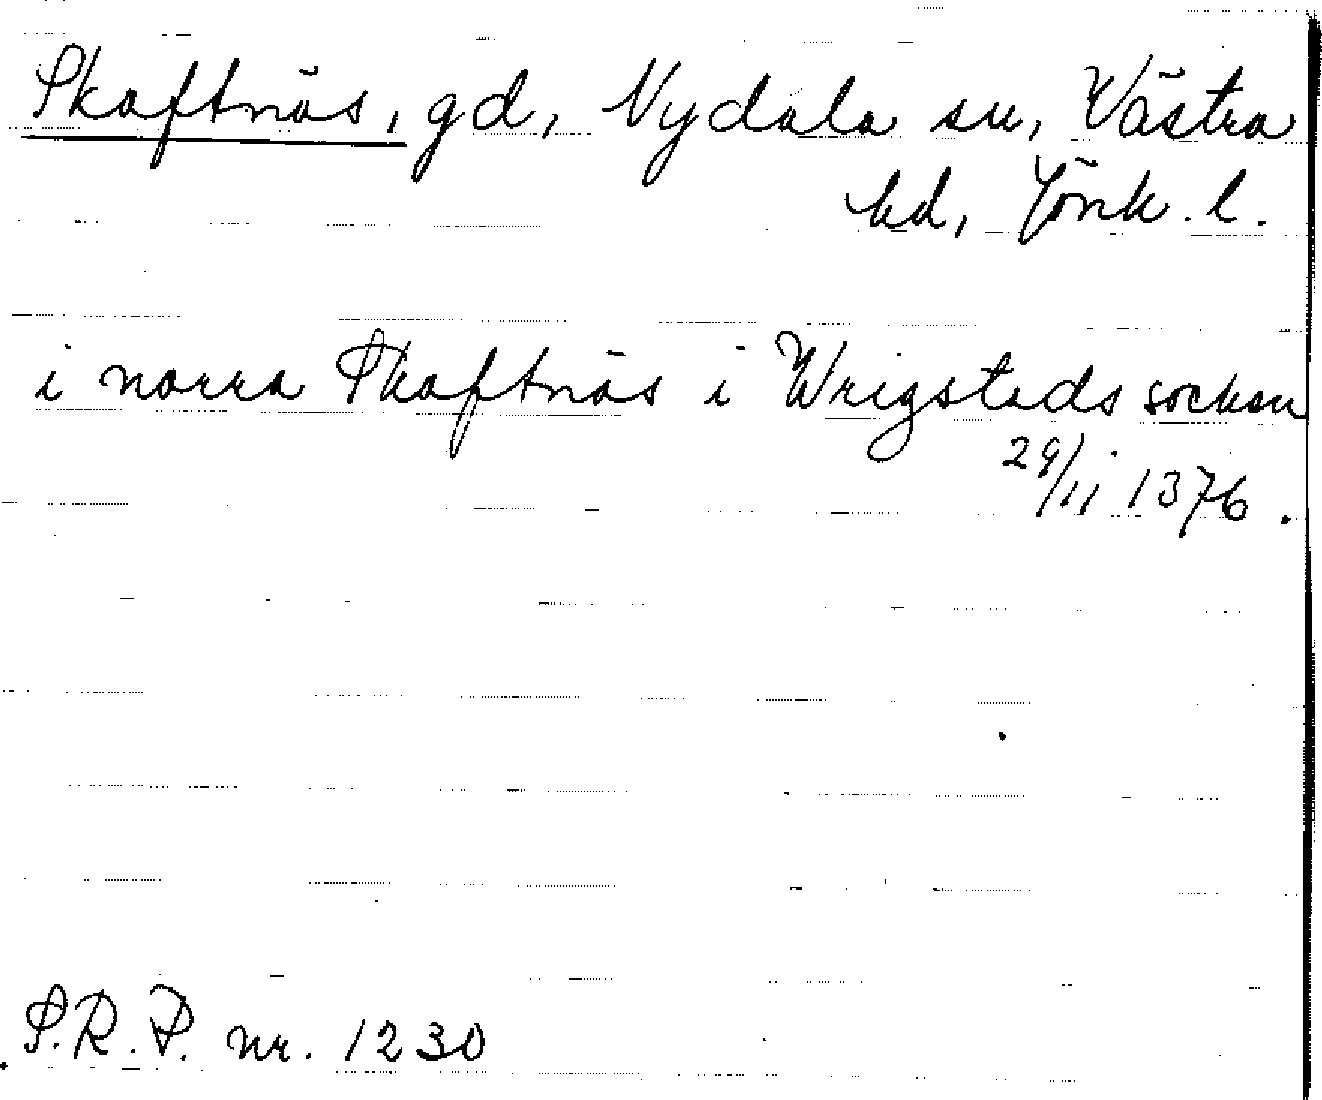 Skaftnäs, gd, Nydala sn, Västra
hd, Jönk. l.
i norra Skaftnäs i Wrigstads socken
29/11 1376.
S.R.P. nr. 1230